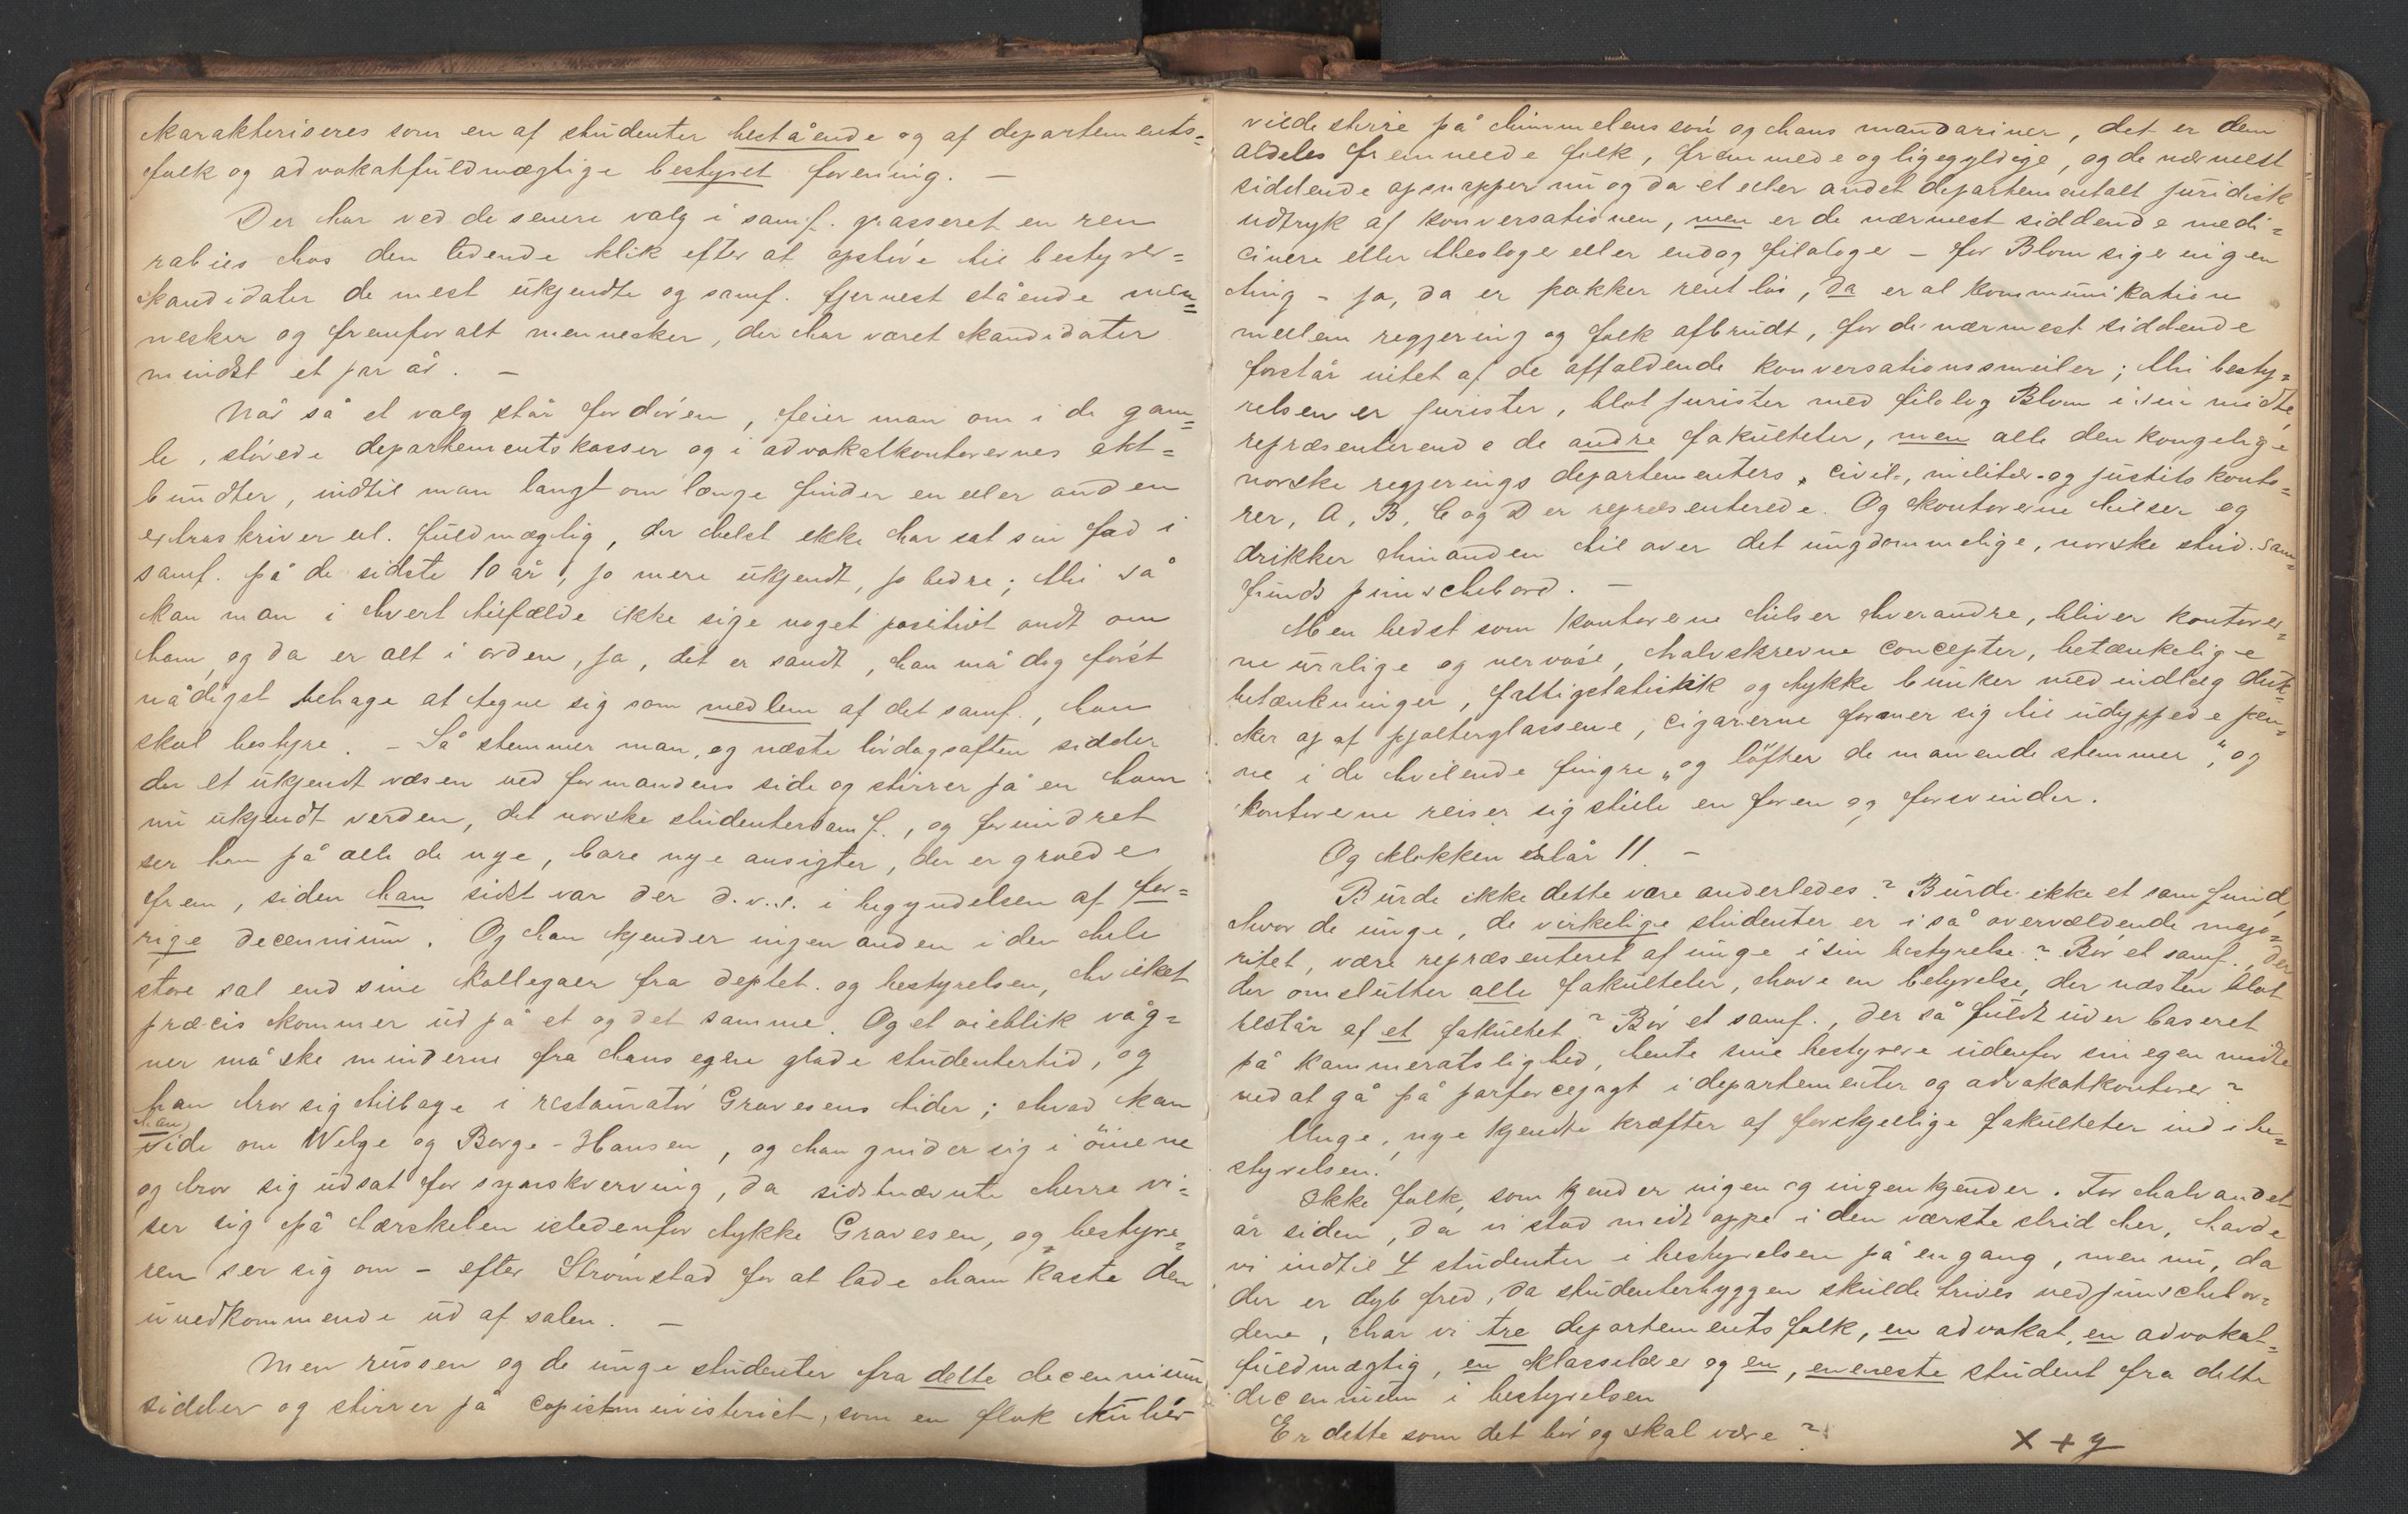 karakteriseres som en af studenter bestående og af departements=
folk og advokatfuldmægtige bestyret forening. —
Der har ved de senere valg i samf. grasseret en ren
rabies hos den ledende klik efter at opstøve til bestyrer=
kandidater de mest ukjendte og samf. fjernest stående men=
nesker og fremforalt mennesker, der har været kandidater
mindst et par år. —
Når så et valg står for døren, feier man om i de gam=
le, støvede departementskasser og i advokatkontorernes akt=
bundter, indtil man langt om længe finder en eller anden
extraskriver el. fuldmægtig, der helst ikke har sat sin fod i
samf. på de sidste 10 år, jo mere ukjendt, jo bedre; thi så
kan man i hvert tilfælde ikke sige noget positivt ondt om
ham, og da er alt i orden, ja, det er sandt, han må dog først
nådigst behage at tegne sig som medlem af det samf., han
skal bestyre. — Så stemmer man, og næste lørdagsaften sidder
der et ukjendt væsen ved formandens side og stirrer på en ham
nu ukjendt verden, det norske studentersamf., og forundret
ser han på alle de nye, bare nye ansigter, der er groede
frem, siden han sidst var der d.v.s. i begyndelsen af for=
rige decennium. Og han kjender ingen anden i den hele
store sal end sine kollegaer fra deptet. og bestyrelsen, hvilket
præcis kommer ud på et og det samme. Og et øieblik våg=
ner måske minderne fra hans egen glade studentertid, og
han tror sig tilbage i restauratør Gravesens tider; hvad kan
han
vide om Welge og Borge-Hansen, og han gnider sig i øinene
og tror sig udsat for synskverving, da sidstnævnte herre vi=
ser sig på tærskelen istedenfor tykke Gravesen, og bestyre=
ren ser sig om — efter Strømstad for at lade ham kaste den
uvedkommende ud af salen. —
Men russen og de unge studenter fra dette decennium
sidder og stirrer på copistministeriet, som en flok kulier
vilde stirre på himmelens søn og hans mandariner, det er dem
aldeles fremmede folk, fremmede og ligegyldige, og de nærmest
siddende opsnapper nu og da et eller andet departementalt juridisk
udtryk af konversationen, men er de nærmest siddende medi=
cinere eller theologer eller endog filologer — for Blom siger ingen
ting — ja, da er pokker rent løs, da er al kommunikation
mellem regjering og folk afbrudt, for de nærmest siddende
forstår intet af de affaldende konversationssmuler; thi besty=
relsen er jurister, blot jurister med filolog Blom i sin midte,
repræsenterende de andre fakulteter, men alle den kongelige
norske regjerings departementers, civil-, militær- og justitskonto=
rer, A, B, C og D er repræsenterede. Og kontorerne hilser og
drikker hinanden til over det ungdommelige, norske stud. sam=
funds punschebord. —
Men bedst som kontorerne hilser hverandre, bliver kontorer=
ne urolige og nervøse, halvskrevne concepter, betænkelige
betænkninger, fattigstatistik og tykke bunker med indlæg duk=
ker op af pjolterglassene, cigarerne former sig til udyppede pen=
ne i de hvilende fingre „og løfter de manende stemmer“, og
kontorerne reiser sig stille en for en og forsvinder.
Og klokken slår 11. —
Burde ikke dette være anderledes? Burde ikke et samfund,
hvor de unge, de virkelige studenter er i så overvældende majo=
ritet, være repræsenteret af unge i sin bestyrelse? Bør et samf., der
der omslutter alle fakulteter, have en betyrelse, der næsten blot
består af et fakultet? Bør et samf., der så fuldt ud er baseret
på kammeratslighed, hente sine bestyrere udenfor sin egen midte
ved at gå på parforcejagt i departementer og advokatkontorer?
Unge, nye kjendte kræfter af forskjellige fakulteter ind i be=
styrelsen!
Ikke folk, som kjender ingen og ingen kjender. For halvandet
år siden, da vi stod midt oppe i den værste strid her, havde
vi indtil 4 studenter i bestyrelsen på engang, men nu, da
der er dyb fred, da studenterhyggen skulde trives ved punschebor=
dene, har vi tre departementsfolk, en advokat, en advokat=
fuldmægtig, en klasselærer og en, en eneste student fra dette
decennium i bestyrelsen
Er dette som det bør og skal være?
x + y